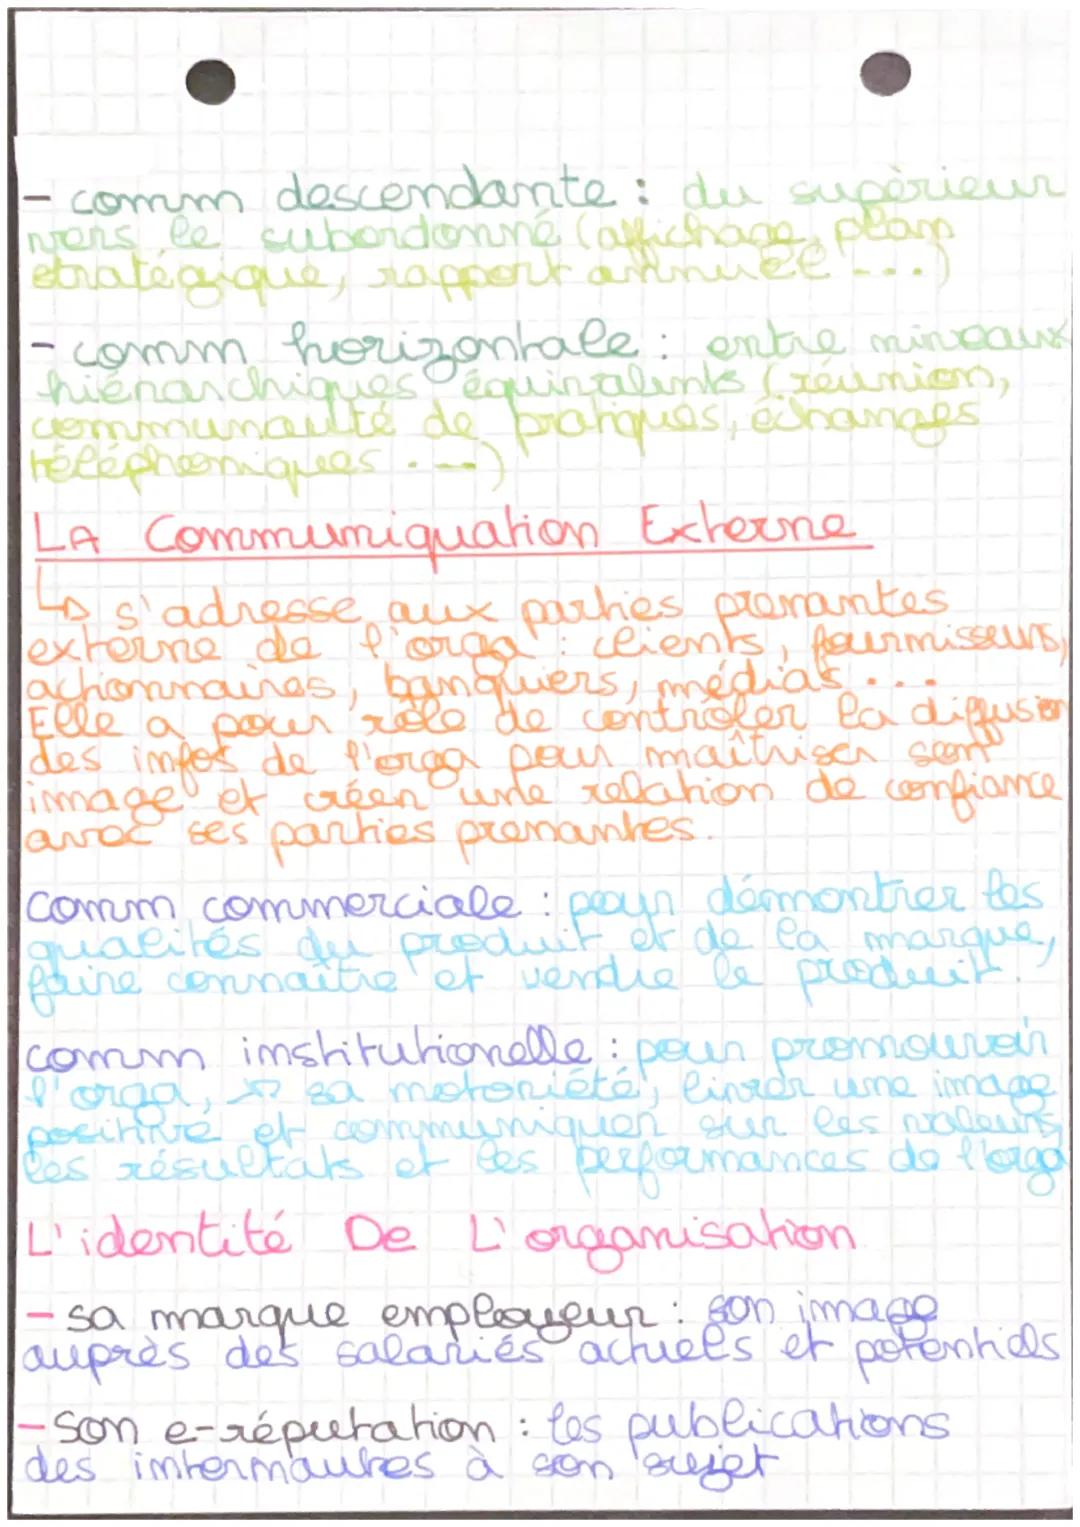 - comm descendante : du supérieur
vers le subordonné (affichage, plan
stratégique, rapport annuel ---)
- comm horizontale : entre niveaux
hiérarchiques équivalents (réunion,
communauté de pratiques, échanges
téléphoniques ---)
LA Communiquation Externe
↳ s'adresse aux parties prenantes
externe de l'orga : clients, fournisseurs,
actionnaires, banquiers, médias ...
Elle a pour rôle de contrôler la diffusion
des infos de l'orga pour maîtriser son
image et créer une relation de confiance
avec ses parties prenantes.
Comm commerciale : pour démontrer les
qualités du produit et de la marque,
faire connaître et vendre le produit.
comm institutionelle : pour promouvoir
l'orga, sa notoriété, livrer une image
positive et communiquer sur les valeurs,
les résultats et les performances de l'orga
L'identité De L'organisation
- sa marque employeur : son image
auprès des salariés actuels et potentiels
- Son e-réputation : les publications
des internautes à son sujet